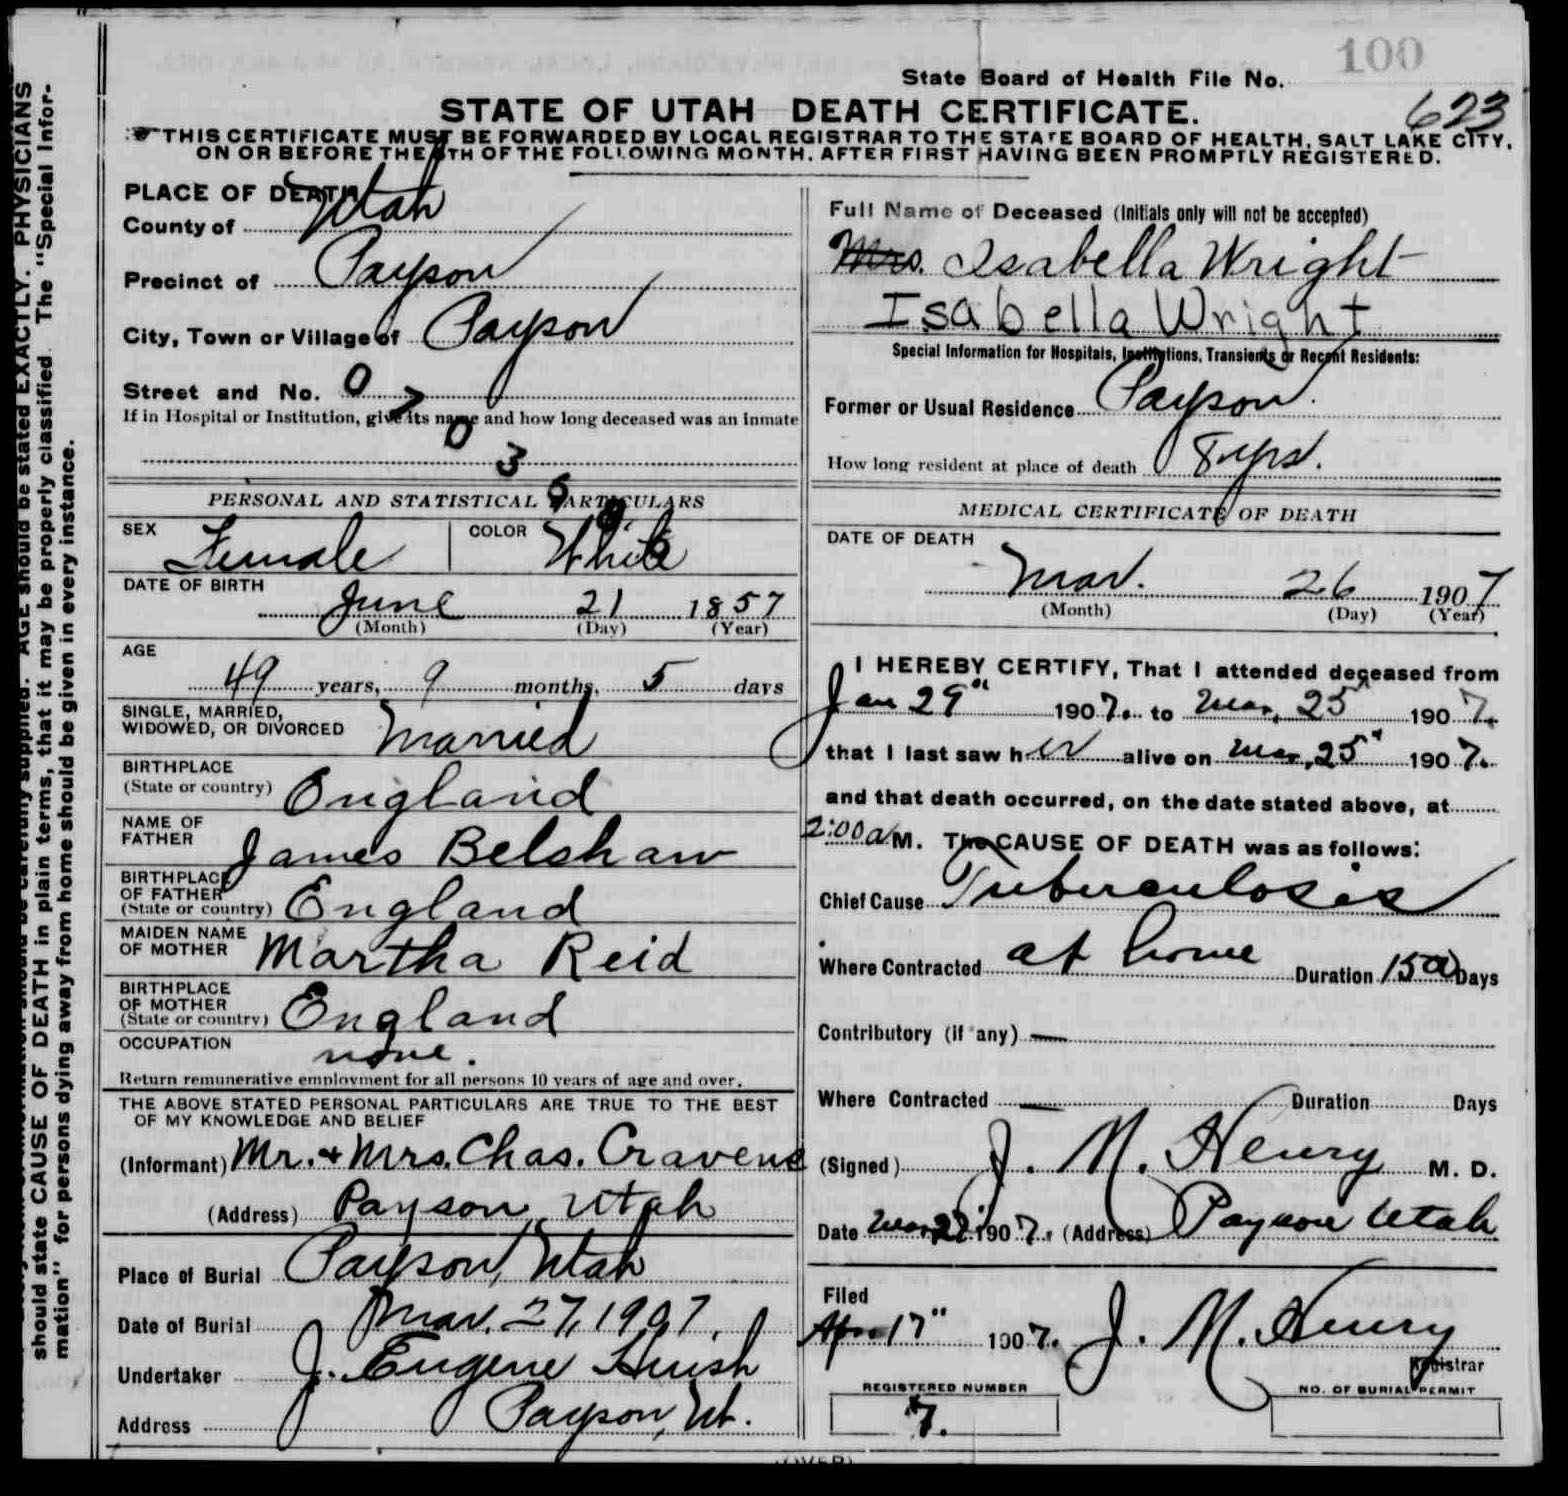 100
State Board of Health File No.
623
STATE OF UTAH DEATH CERTIFICATE.
THIS CERTIFICATE MUST BE FORWARDED BY LOCAL REGISTRAR TO THE STATE BOARD OF HEALTH, SALT LAKE CITY,
ON OR BEFORE THE 5TH OF THE FOLLOWING MONTH, AFTER FIRST HAVING BEEN PROMPTLY REGISTERED.
should state CAUSE OF DEATH in plain terms, that it may be properly classified. The "Special Infor-
mation" for persons dying away from home should be given in every instance.
AGE should be stated EXACTLY. PHYSICIANS
PLACE OF DEATH
County of Utah
Precinct of Payson
City, Town or Village of Payson
Street and No.
0 7 0 3
If in Hospital or Institution, give its name and how long deceased was an inmate
PERSONAL AND STATISTICAL PARTICULARS
SEX Female COLOR White
DATE OF BIRTH
June 21 1857
(Month) (Day) (Year)
AGE
49 years, 9 months, 5 days
SINGLE, MARRIED,
WIDOWED, OR DIVORCED Married
BIRTHPLACE
(State or country) England
NAME OF
FATHER James Belshaw
BIRTHPLACE
OF FATHER
(State or country) England
MAIDEN NAME
OF MOTHER Martha Reid
BIRTHPLACE
OF MOTHER
(State or country) England
OCCUPATION none.
Return remunerative employment for all persons 10 years of age and over.
THE ABOVE STATED PERSONAL PARTICULARS ARE TRUE TO THE BEST
OF MY KNOWLEDGE AND BELIEF
(Informant) Mr. & Mrs. Chas. Cravens
(Address) Payson, Utah
Place of Burial Payson, Utah
Date of Burial Mar. 27, 1907.
Undertaker J. Eugene Huish
Address Payson, Ut.
Full Name of Deceased (Initials only will not be accepted)
Mrs. Isabella Wright
Isabella Wright
Special Information for Hospitals, Institutions, Transients or Recent Residents:
Former or Usual Residence Payson.
How long resident at place of death 8 yrs.
MEDICAL CERTIFICATE OF DEATH
DATE OF DEATH
Mar. 26 1907
(Month) (Day) (Year)
I HEREBY CERTIFY, That I attended deceased from
Jan 29" 1907. to Mar, 25" 1907.
that I last saw her alive on Mar, 25" 1907.
and that death occurred, on the date stated above, at
2:00 a M. The CAUSE OF DEATH was as follows:
Chief Cause Tuberculosis
Where Contracted at home Duration 150 Days
Contributory (if any) —
Where Contracted — Duration Days
(Signed) J. M. Henry M. D.
Date Mar, 27" 1907. (Address) Payson Utah
Filed
Apr 17" 1907. J. M. Henry
Registrar
REGISTERED NUMBER
7.
NO. OF BURIAL PERMIT
(OVER)